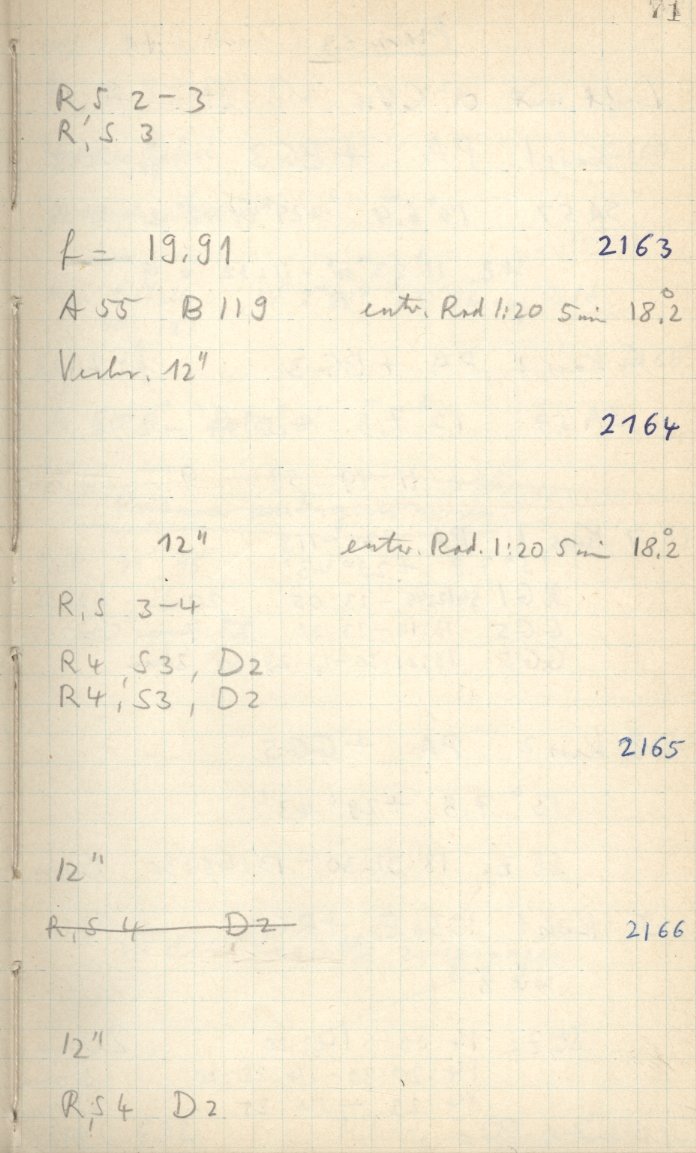 71
R, S 2-3
R, S 3
f = 19.91 2163
A 55 B 119 entw. Rod 1:20 5 min 18.°2
12"
2164
12" entw. Rod. 1:20 5 min 18.°2
R, S 3-4
R4, S3, D2
R4, S3, D2
2165
12"
R, S 4 D2 2166
12"
R, S 4 D2